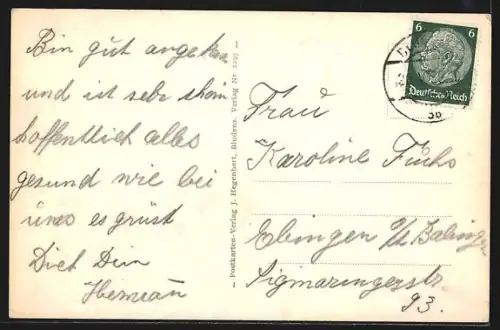 Bin gut angekom
und ist sehr schön
hoffentlich alles
gesund wie bei
uns es grüst
Dich Dein
Hermann
Postkarten-Verlag J. Hegenbart, Bludenz. Verlag Nr
Frau
Karoline Fuchs
Ebingen Balingen
Sigmaringerstr
93.
6 6
Deutsches Reich